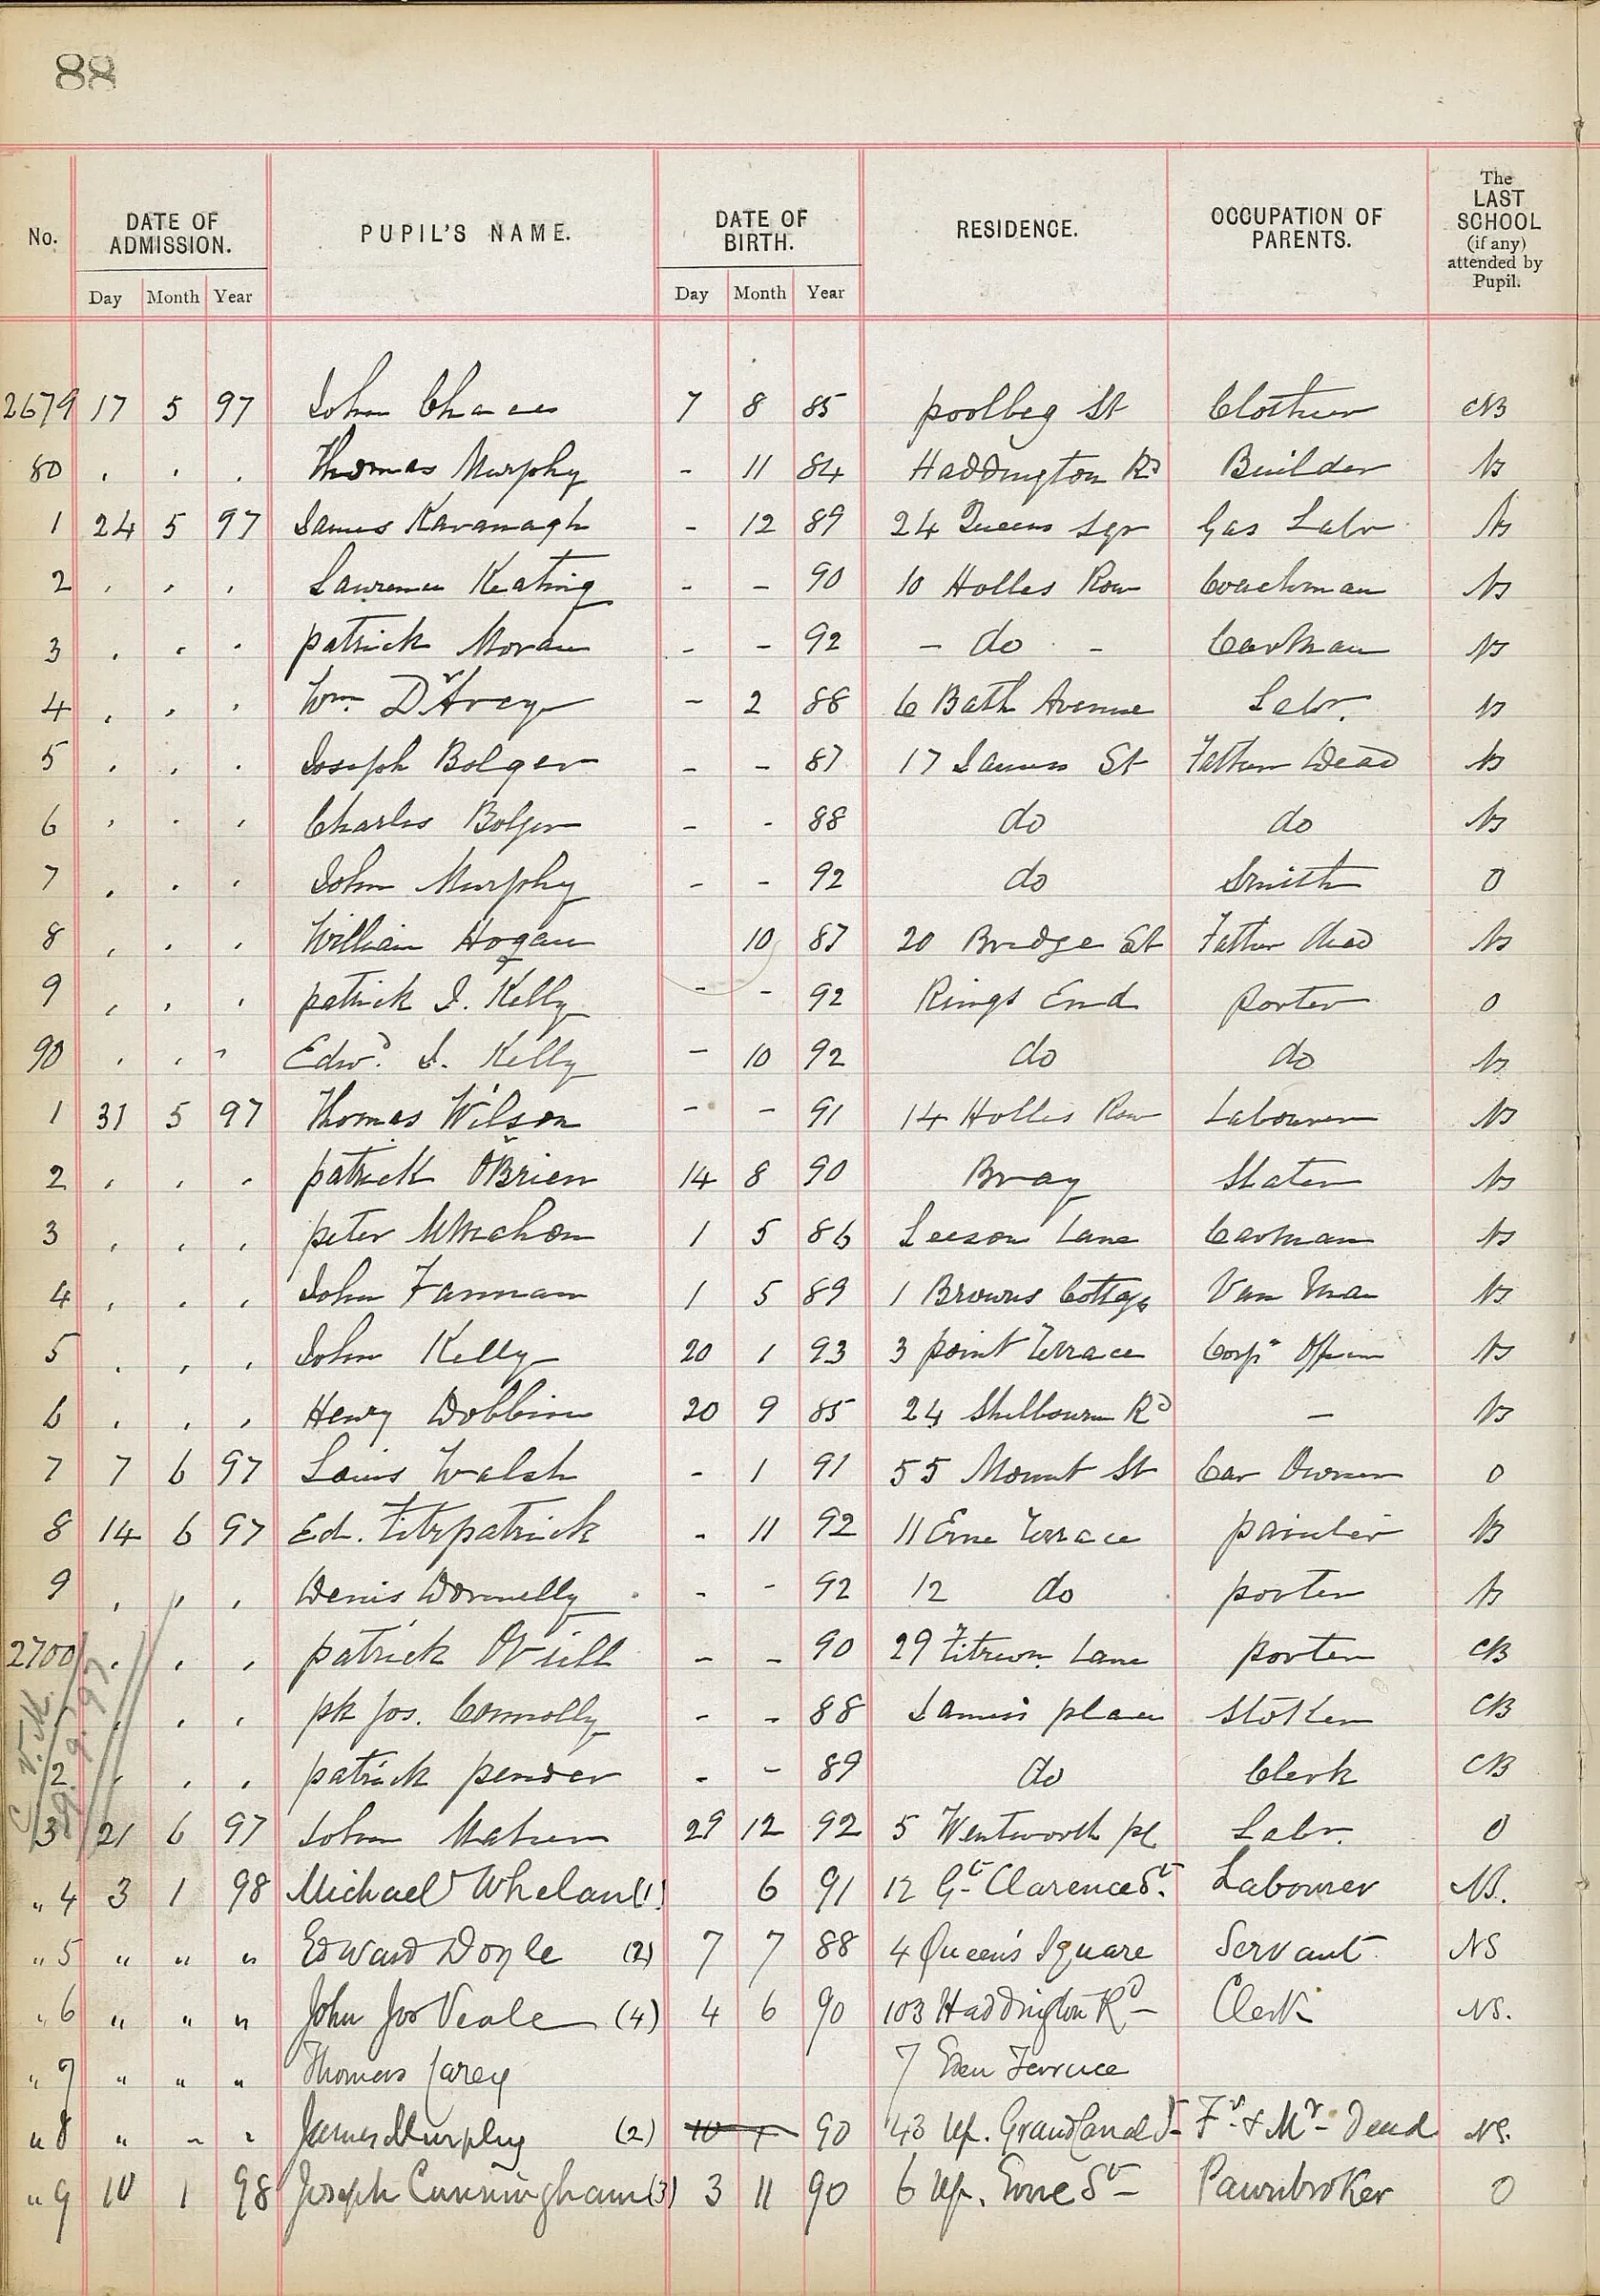 88
No. DATE OF ADMISSION. PUPIL'S NAME. DATE OF BIRTH. RESIDENCE. OCCUPATION OF PARENTS. The LAST SCHOOL (if any) attended by Pupil.
Day Month Year Day Month Year
2679 17 5 97 John 7 8 85 poolbeg St Clothier CB
80 . . . Thomas Murphy - 11 84 Haddington Rd Builder NS
1 24 5 97 James Kavanagh - 12 89 24 Queens Sqr Gas Labr NS
2 . . . Laurence Keating - - 90 10 Holles Row Coachman NS
3 . . . patrick Moran - - 92 - do - Carman NS
4 . . . Wm. D'Arcy - 2 88 6 Bath Avenue Labr. NS
5 . . . Joseph Bolger - - 87 17 James St Father Dead NS
6 . . . Charles Bolger - - 88 do do NS
7 . . . John Murphy - - 92 do Smith O
8 . . . William Hogan 10 87 20 Bridge St Father dead NS
9 . . . patrick J. Kelly - - 92 Rings End porter O
90 . . . Edwd. J. Kelly - 10 92 do do NS
1 31 5 97 Thomas Wilson - - 91 14 Holles Row Labourer NS
2 . . . patrick O'Brien 14 8 90 Bray Slater NS
3 . . . peter McMahon 1 5 86 Leeson Lane Carman NS
4 . . . John Fannan 1 5 89 1 Browns Cottage Van Man NS
5 . . . John Kelly 20 1 93 3 point Terrace Corpn NS
6 . . . Henry Dobbin 20 9 85 24 Shelbourn Rd - NS
7 7 6 97 Louis Walsh - 1 91 55 Mount St Car Owner O
8 14 6 97 Ed. Fitzpatrick - 11 92 11 Erne Terrace painter NS
9 . . . Denis Donnelly - - 92 12 do porter NS
2700 . . . patrick O'Neill - - 90 29 Fitzwm. Lane porter CB
. . . pk Jos. Connolly - - 88 James place Stoker CB
2 . . . patrick pender - - 89 do Clerk CB
3 21 6 97 John Maher 29 12 92 5 Wentworth pl Labr. O
" 4 3 1 98 Michael Whelan (1) 6 91 12 Gt. Clarence St. Labourer NS.
" 5 " " " Edward Doyle (2) 7 7 88 4 Queen's Square Servant NS
" 6 " " " John Jos Veale (4) 4 6 90 103 Haddington Rd Clerk NS.
" 7 " " " Thomas Carey 7 Eden Terrace
" 8 " " " James Murphy (2) 90 43 Up. Grand Canal St Fr. & Mr. Dead NS.
" 9 10 1 98 Joseph Cunningham (3) 3 11 90 6 Up. Erne St Pawnbroker O